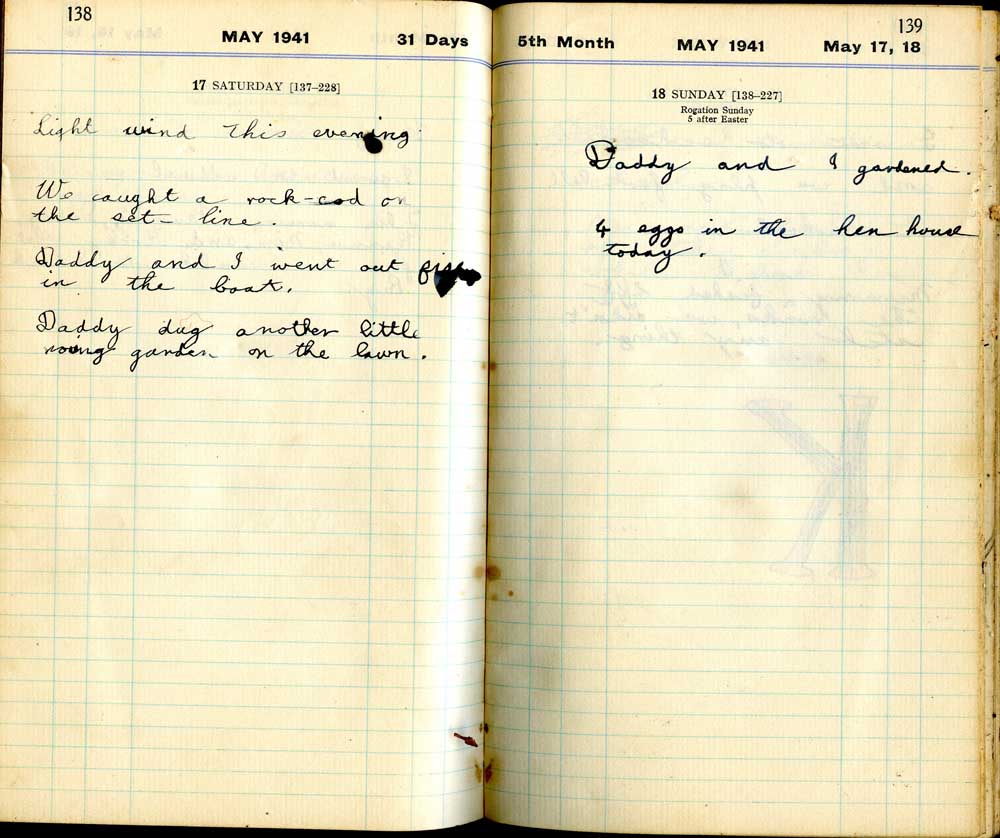 138
MAY 1941 31 Days
17 SATURDAY [137–228]
Light wind This evening
We caught a rock-cod on
the set-line.
Daddy and I went out
in the boat.
Daddy dug another little
garden on the lawn.
139
5th Month MAY 1941 May 17, 18
18 SUNDAY [138–227]
Rogation Sunday
5 after Easter
Daddy and I gardened.
4 eggs in the hen house
today.